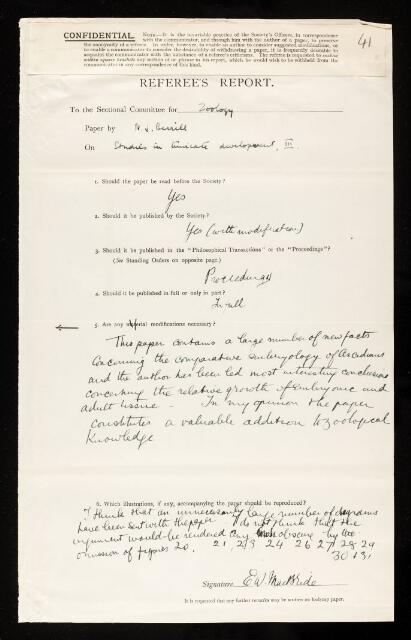 41
CONFIDENTIAL
Note.—It is the invariable practice of the Society's Officers, in correspondence
with the communicator, and through him with the author of a paper, to preserve
the anonymity of a referee. In order, however, to enable an author to consider suggested modifications, or
to enable a communicator to consider the desirability of withdrawing a paper, it is frequently desirable to
acquaint the communicator with the substance of a referee's criticisms. The referee is requested to enclose
within square brackets any section of or phrase in his report, which he would wish to be withheld from the
communicator in any correspondence of this kind.
REFEREE'S REPORT.
To the Sectional Committee for Zoology
Paper by N. J. Berrill
On Studies in tunicate development, III.
1. Should the paper be read before the Society?
Yes
2. Should it be published by the Society?
Yes (with modification)
3. Should it be published in the "Philosophical Transactions" or the "Proceedings"?
(See Standing Orders on opposite page.)
Proceedings
4. Should it be published in full or only in part?
In full
5. Are any modifications necessary?
This paper contains a large number of new facts
concerning the comparative embryology of Ascidians
and the author has been led most interesting conclusions
concerning the relative growth of embryonic and
adult tissue. In my opinion the paper
constitutes a valuable addition to zoological
Knowledge
6. Which illustrations, if any, accompanying the paper should be reproduced?
I think that an unnecessarily large number of diagrams
have been sent with the paper I do not think that the
argument would be rendered any obscure by the
omission of figures 20, 21, 23 24 26 27 28 29
30 + 31
Signature E W MacBride
It is requested that any further remarks may be written on foolscap paper.